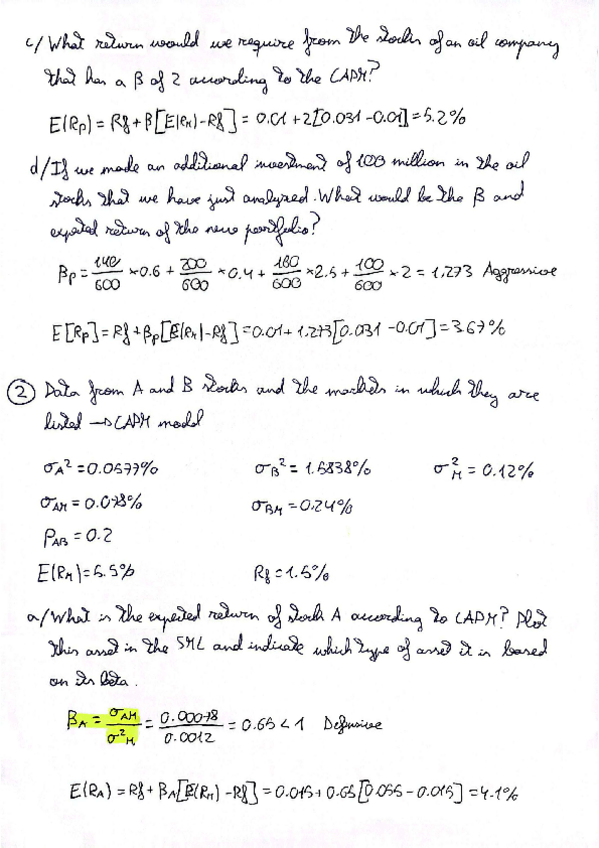 c/ What return would we require from the stocks of an oil company
that has a β of 2 according to the CAPM?
E(Rp) = Rf + β[E(RM) - Rf] = 0.01 + 2[0.031 - 0.01] = 5.2%
d/ If we made an additional investment of 100 million in the oil
stocks that we have just analyzed. What would be the β and
expected return of the new portfolio?
βp = 140/600 * 0.6 + 200/600 * 0.4 + 160/600 * 2.5 + 100/600 * 2 = 1.273 Aggressive
E[Rp] = Rf + βp[E(RM) - Rf] = 0.01 + 1.273[0.031 - 0.01] = 3.67%
② Data from A and B stocks and the markets in which they are
listed → CAPM model
σA² = 0.0577% σB² = 1.5838% σ²M = 0.12%
σAM = 0.078% σBM = 0.24%
ρAB = 0.2
E(RM) = 5.5% Rf = 1.5%
a/ What is the expected return of stock A according to CAPM? Plot
this asset in the SML and indicate which type of asset it is based
on its beta.
βA = σAM/σ²M = 0.00078/0.0012 = 0.65 < 1 Defensive
E(RA) = Rf + βA[E(RM) - Rf] = 0.015 + 0.65[0.055 - 0.015] = 4.1%